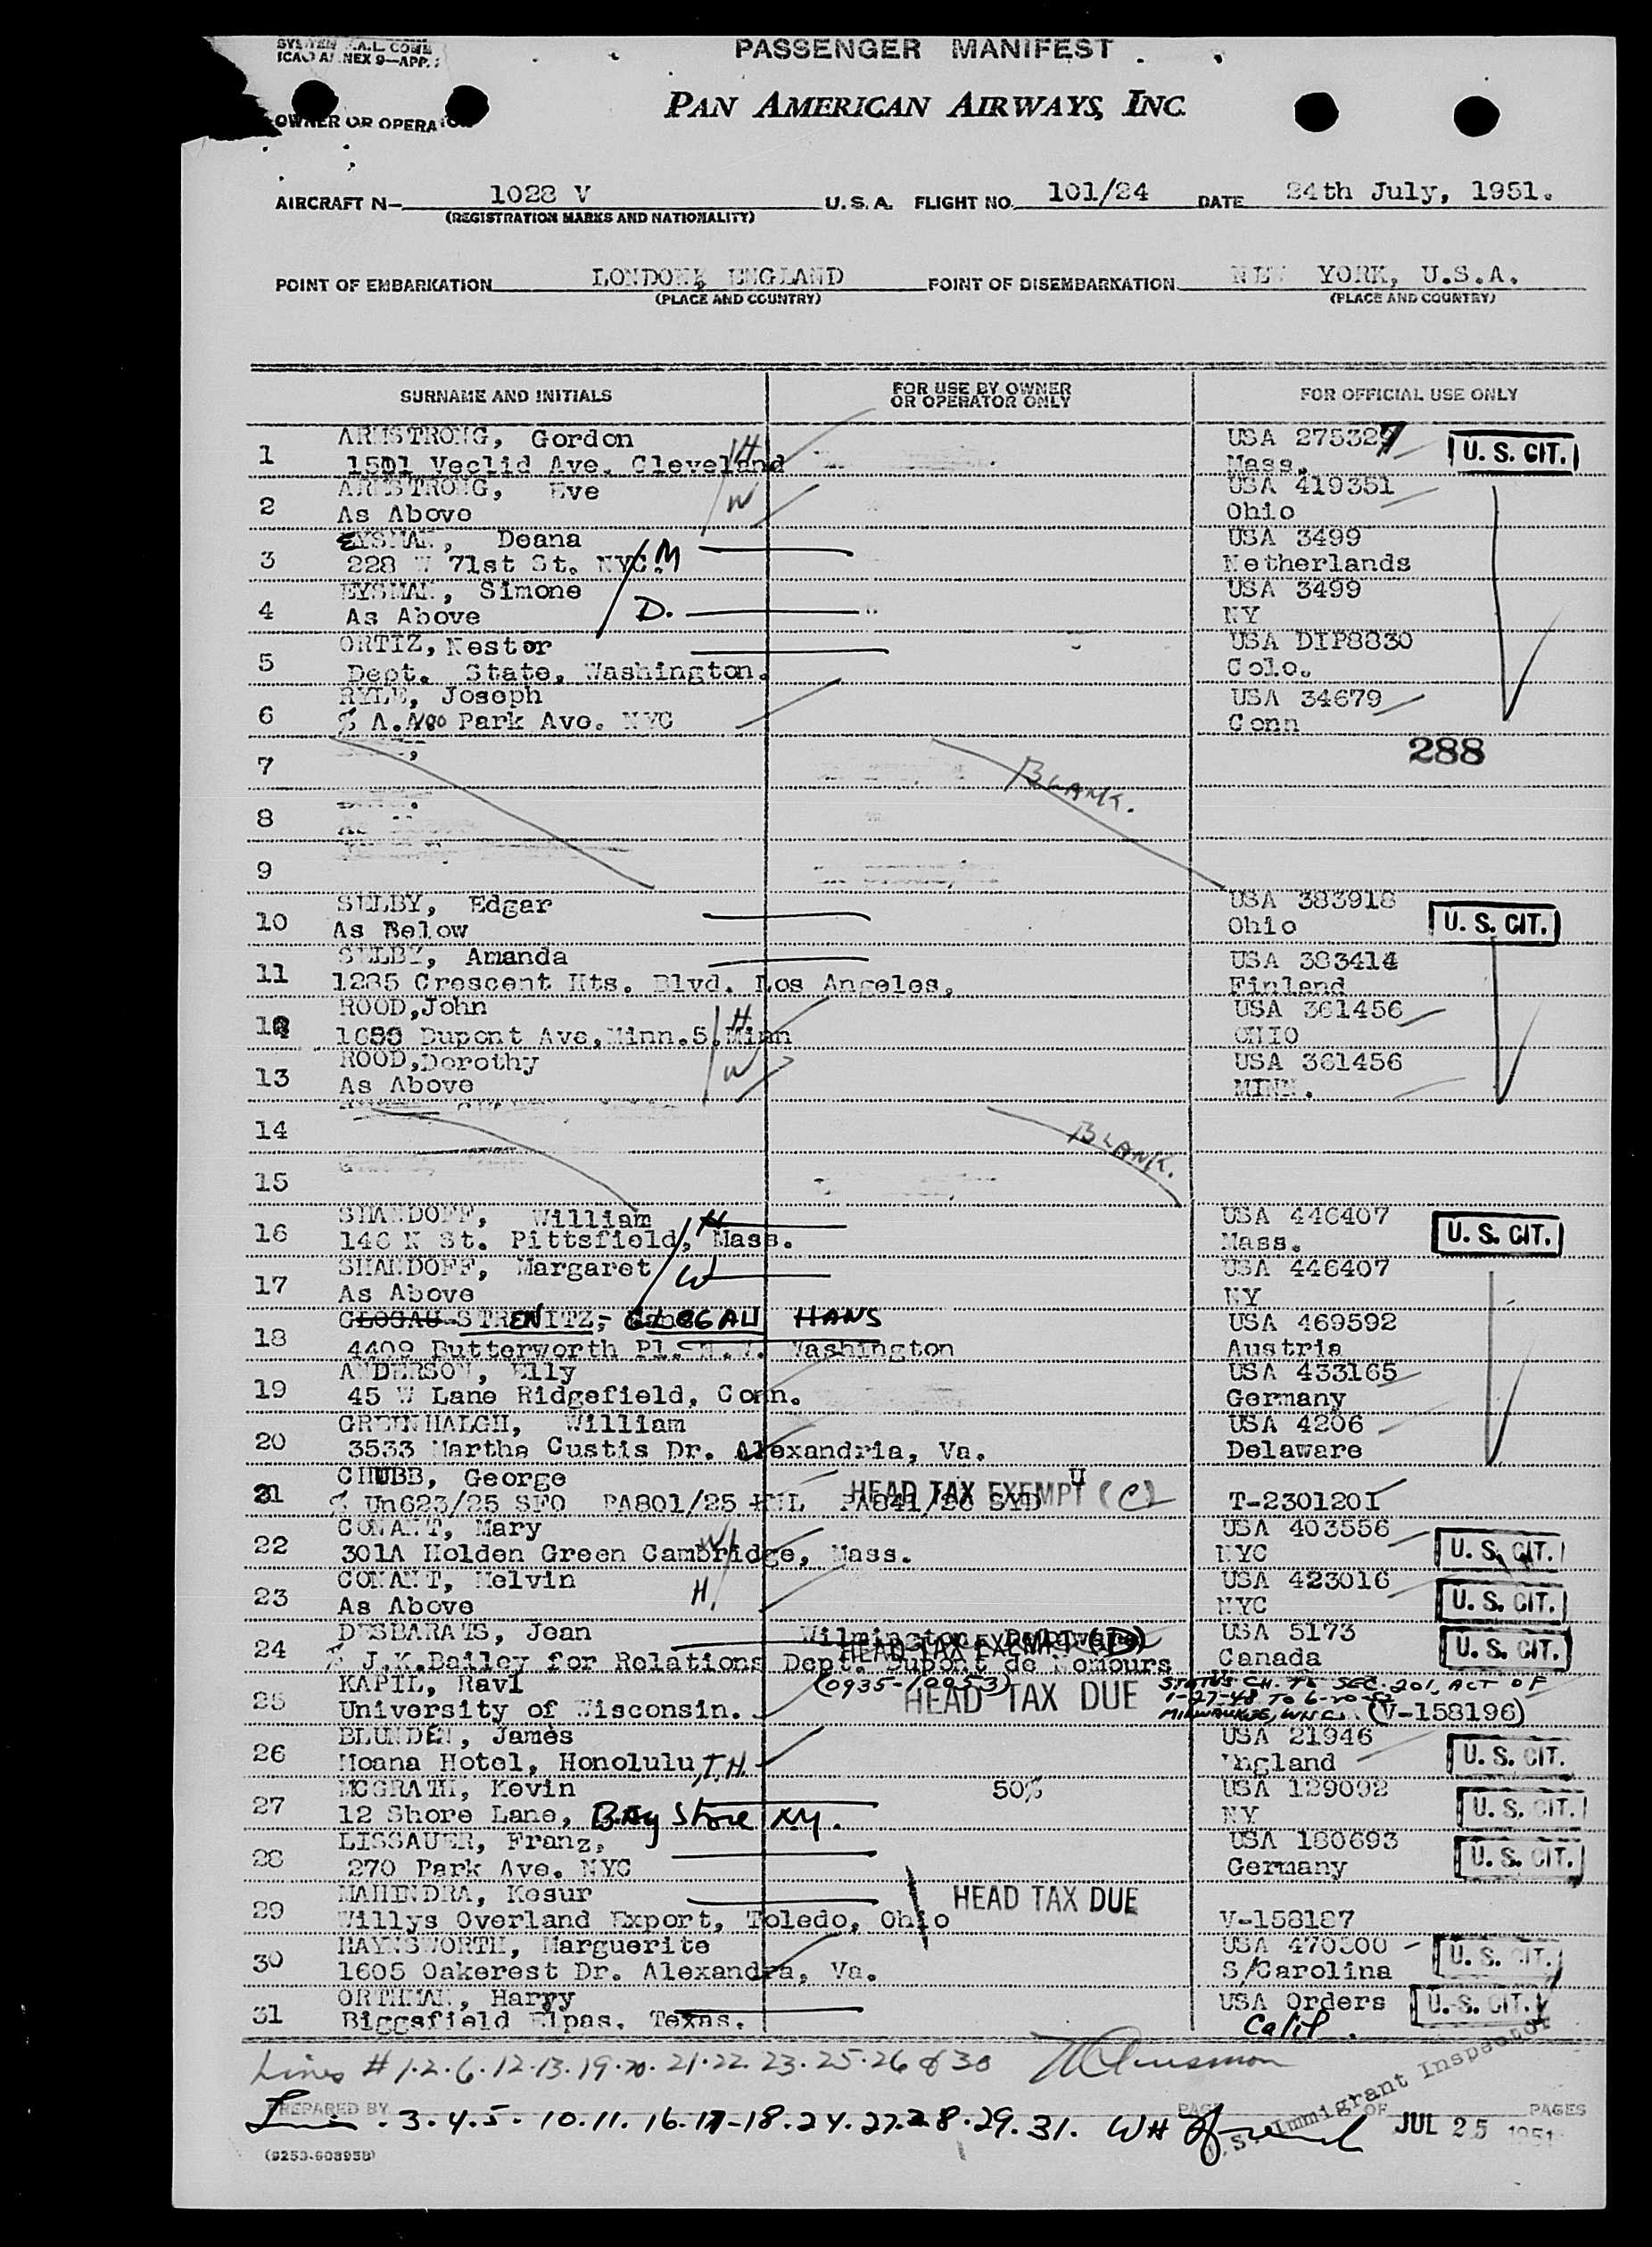 PASSENGER MANIFEST
ICAO ANNEX 9—APP.
OWNER OR OPERATOR
PAN AMERICAN AIRWAYS, INC.
AIRCRAFT N— 1028 V U.S.A. FLIGHT NO. 101/24 DATE 24th July, 1951.
(REGISTRATION MARKS AND NATIONALITY)
POINT OF EMBARKATION LONDON, ENGLAND POINT OF DISEMBARKATION NEW YORK, U.S.A.
(PLACE AND COUNTRY) (PLACE AND COUNTRY)
SURNAME AND INITIALS FOR USE BY OWNER OR OPERATOR ONLY FOR OFFICIAL USE ONLY
1 ARMSTRONG, Gordon H USA 275327 U. S. CIT.
Veclid Ave. Cleveland Mass.
2 ARMSTRONG, Eve W USA 419351
As Above Ohio
3 EYSMAN, Deana M USA 3499
228 W 71st St. NYC. Netherlands
4 EYSMAN, Simone D. USA 3499
As Above NY
5 ORTIZ, Nestor USA DIP8830
Dept. State, Washington. Colo.
6 RYLE, Joseph USA 34679
Park Ave. NYC Conn
7 BLANK. 288
8
9
10 SELBY, Edgar USA 383918 U. S. CIT.
As Below Ohio
11 SELBY, Amanda USA 383414
1285 Crescent Hts. Blvd. Los Angeles, Finland
12 ROOD,John H USA 361456
Dupont Ave,Minn.5,Minn OHIO
13 ROOD,Dorothy W USA 361456
As Above MINN.
14 BLANK.
15
16 SHANDOFF, William H USA 446407 U. S. CIT.
146 N St. Pittsfield, Mass. Mass.
17 SHANDOFF, Margaret W USA 446407
As Above NY
18 GLOGAU STRENITZ, GLOGAU HANS USA 469592
4409 Butterworth Pl. N.W. Washington Austria
19 ANDERSON, Elly USA 433165
45 W Lane Ridgefield, Conn. Germany
20 GREENHALGH, William USA 4206
3533 Martha Custis Dr. Alexandria, Va. Delaware
21 CHUBB, George HEAD TAX EXEMPT (C)
% Un623/25 SFO PA801/25 HNL PA841/26 SYD T-2301201
22 CONANT, Mary W USA 403556 U. S. CIT.
301A Holden Green Cambridge, Mass. NYC
23 CONANT, Melvin H. USA 423016 U. S. CIT.
As Above NYC
24 DESBARATS, Jean Wilmington, Delaware HEAD TAX EXEMPT (D) USA 5173 U. S. CIT.
% J.K.Bailey for Relations Dept. Dupont de Nemours Canada
25 KAPIL, Ravi (0935-10053) HEAD TAX DUE STATUS CH. TO SEC. 201, ACT OF
University of Wisconsin. 1-27-48 TO MILWAUKEE, (V-158196)
26 BLUNDEN, James USA 21946 U. S. CIT.
Moana Hotel, Honolulu, T.H. England
27 MCGRATH, Kevin 50% USA 129092 U. S. CIT.
12 Shore Lane, Bay Shore N.Y. NY
28 LISSAUER, Franz, USA 180693 U. S. CIT.
270 Park Ave. NYC Germany
29 MAHINDRA, Kesur HEAD TAX DUE
Willys Overland Export, Toledo, Ohio V-158187
30 HAYNSWORTH, Marguerite USA 470300 U. S. CIT.
1605 Oakcrest Dr. Alexandra, Va. S/Carolina
31 ORTHMAN, Harry USA Orders U. S. CIT.
Biggsfield Elpas. Texas. Calif.
Lines # 1.2.6.12.13.19.20.21.22.23.25.26 & 30
PREPARED BY PAGE OF PAGES
3.4.5. 10.11. 16.17-18.24.27.28.29.31.
U.S. Immigrant Inspector JUL 25 1951
(9253-60895B)